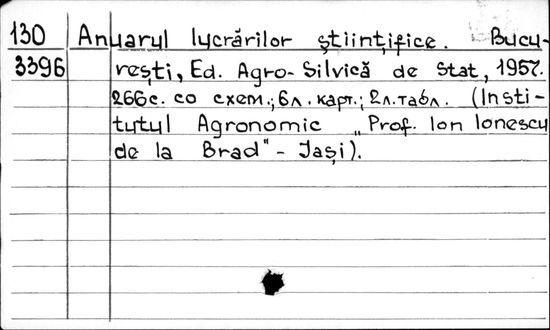 130 Anuarul lucrărilor ştiinţifice. Bucu-
3396 reşti, Ed. Agro-Silvică de Stat, 1957.
266с. со схем.; 6л. карт.; 2л. табл. (Insti-
tutul Agronomic „Prof. Ion Ionescu
de la Brad" - Iaşi).